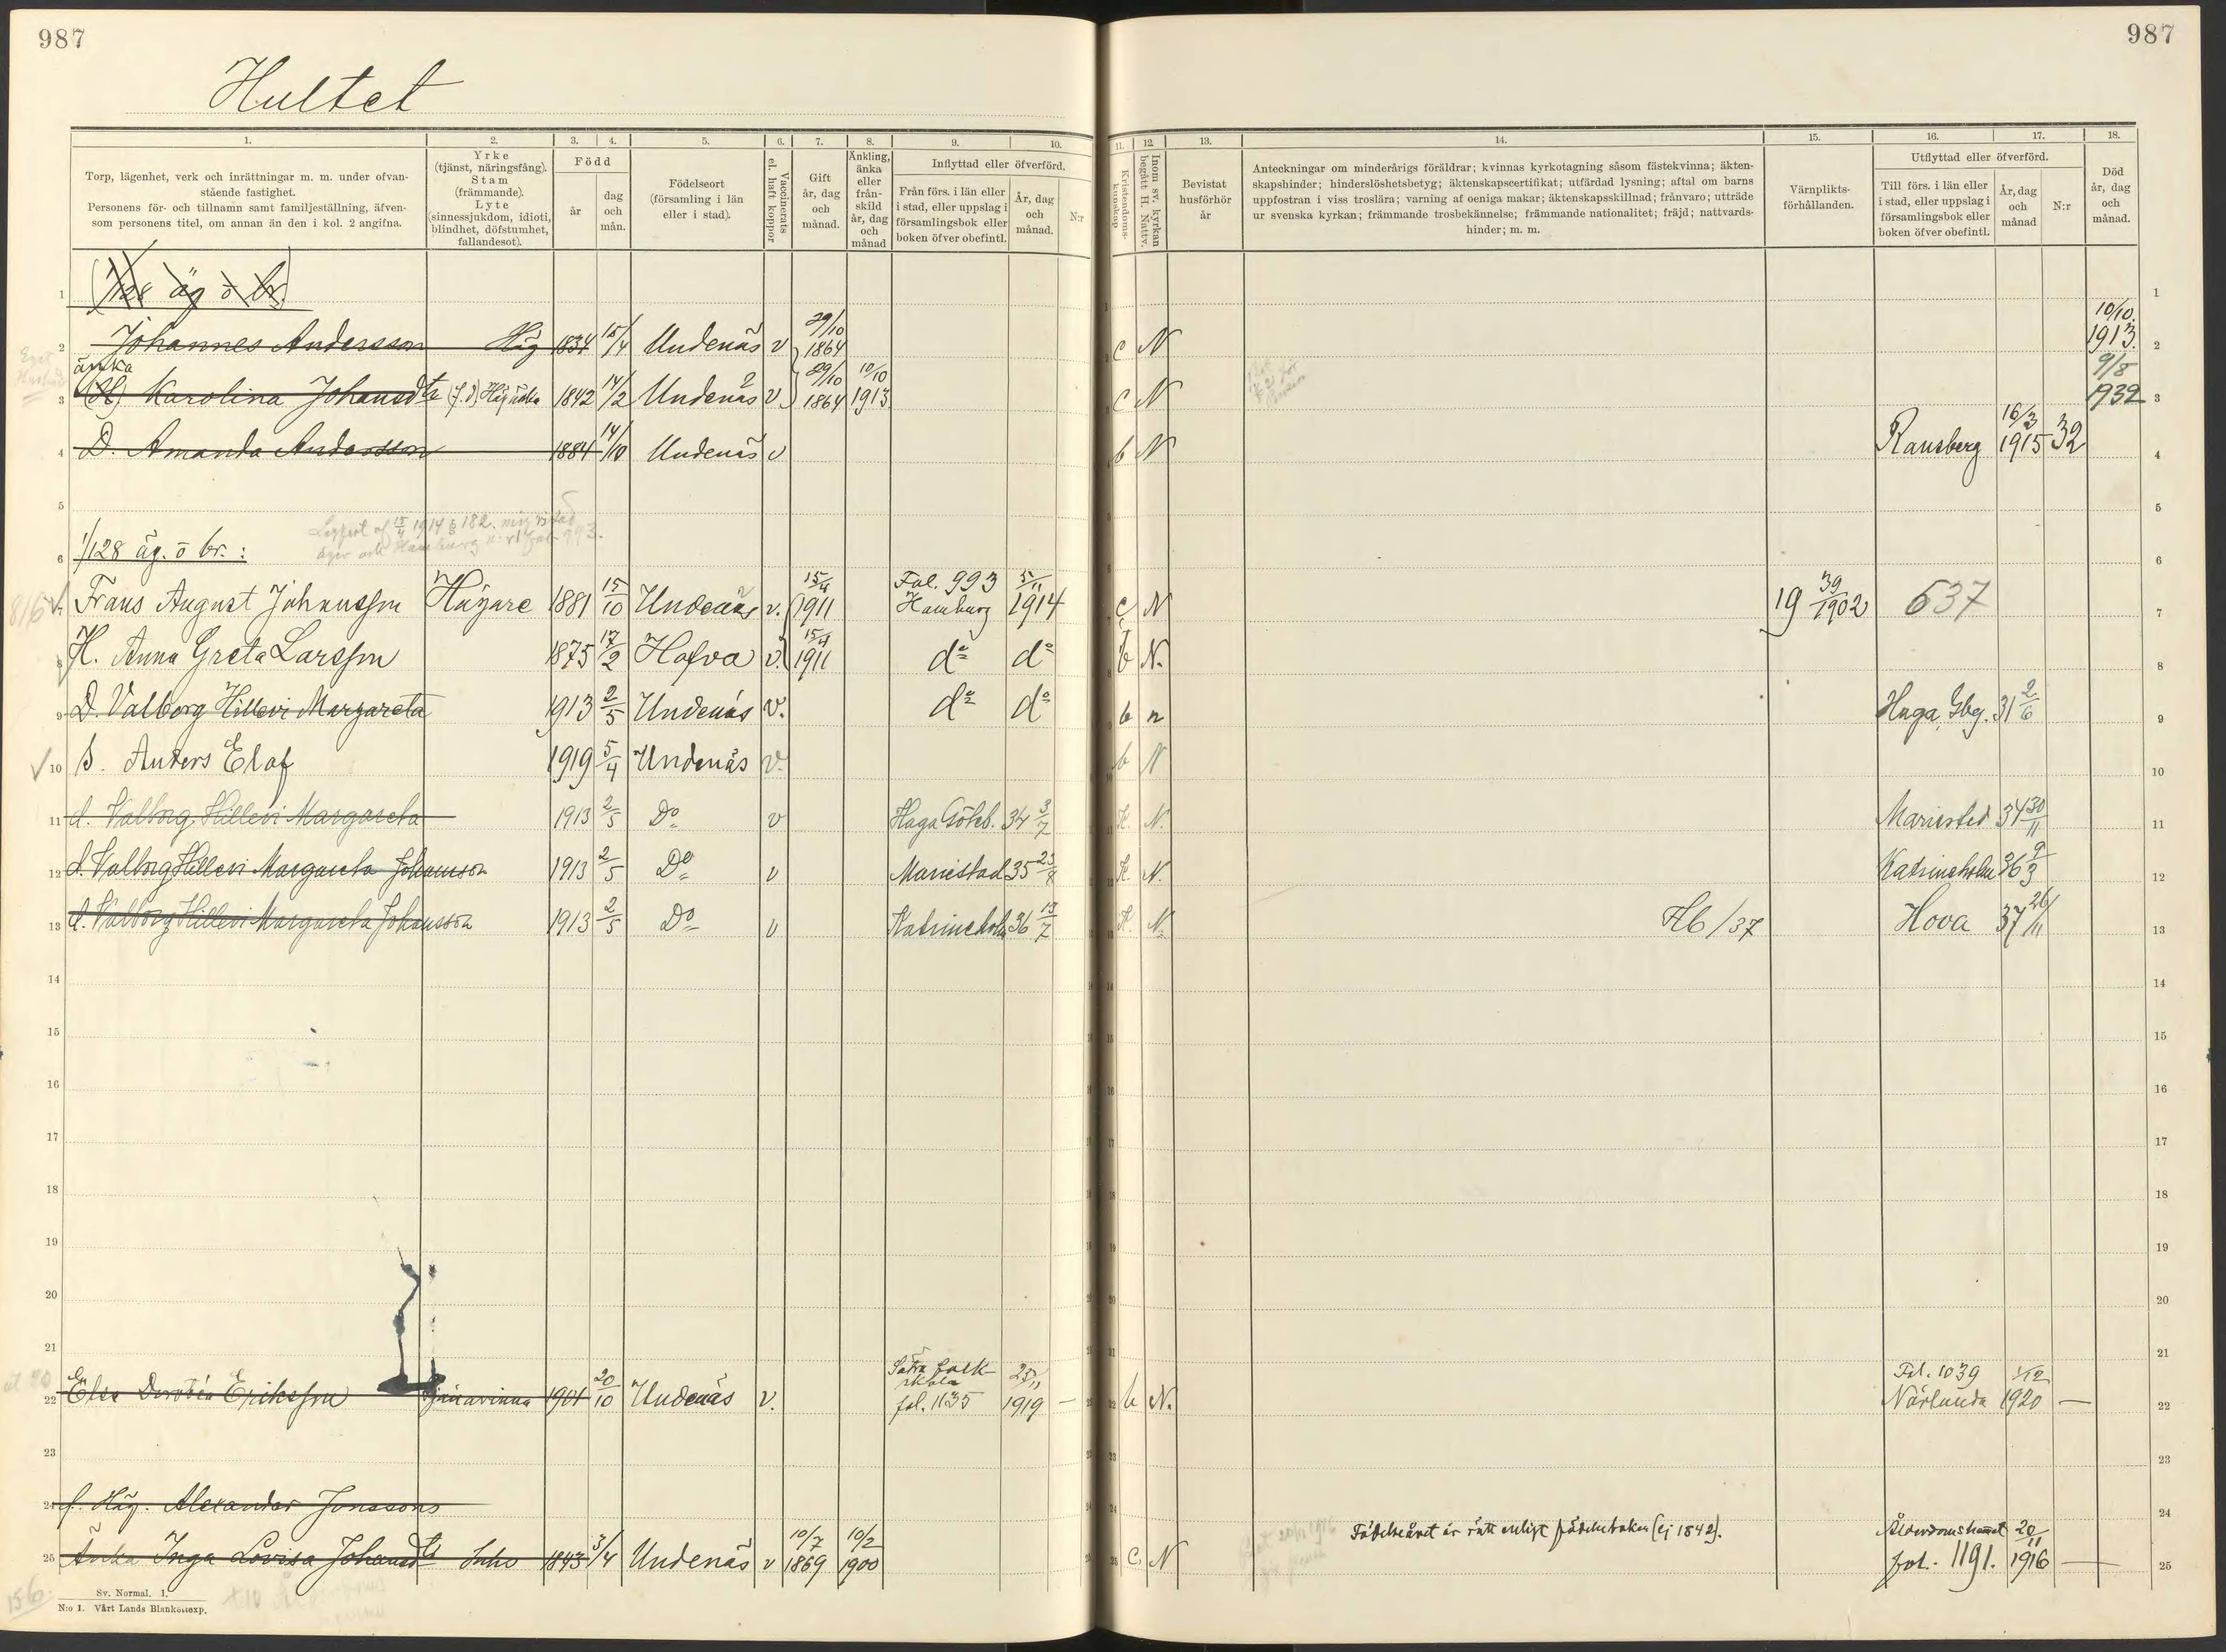 987
987
Hultet
1.
2.
3.
4.
5.
6.
7.
8.
9.
10.
11.
12.
13.
14.
15.
16.
17.
18.
Torp, lägenhet, verk och inrättningar m. m. under ofvan-
stående fastighet.
Personens för- och tillnamn samt familjeställning, äfven-
som personens titel, om annan än den i kol. 2 angifna.
Yrke
(tjänst, näringsfång).
Stam
(främmande).
Lyte
(sinnessjukdom, idioti,
blindhet, döfstumhet,
fallandesot).
Född
år
dag
och
mån.
Födelseort
(församling i län
eller i stad).
Vaccinerats
el. haft koppor
Gift
år, dag
och
månad.
Änkling,
änka
eller
från-
skild
år, dag
och
månad
Inflyttad eller öfverförd.
Från förs. i län eller
i stad, eller uppslag i
församlingsbok eller
boken öfver obefintl.
År, dag
och
månad.
N:r
Kristendoms-
kunskap
Inom sv. kyrkan
begått H. Nattv.
Bevistat
husförhör
år
Anteckningar om minderårigs föräldrar; kvinnas kyrkotagning såsom fästekvinna; äkten-
skapshinder; hinderslöshetsbetyg; äktenskapscertifikat; utfärdad lysning; aftal om barns
uppfostran i viss troslära; varning af oeniga makar; äktenskapsskillnad; frånvaro; utträde
ur svenska kyrkan; främmande trosbekännelse; främmande nationalitet; fräjd; nattvards-
hinder; m. m.
Värnplikts-
förhållanden.
Utflyttad eller öfverförd.
Till förs. i län eller
i stad, eller uppslag i
församlingsbok eller
boken öfver obefintl.
År, dag
och
månad
N:r
Död
år, dag
och
månad.
1 1/128 äg ö br. 1
2 Johannes Andersson Häg 1834 15/4 Undenäs v 29/10 1864 c N 10/10 1913. 2
änka
3 (H) Karolina Johansdtr (f.d) Häg änka 1842 14/2 Undenäs v 29/10 1864 10/10 1913 c N 9/8 1932 3
4 D. Amanda Andersson 1884 14/10 Undenäs v b N Ransberg 16/3 1915 32 4
5 5
6 1/128 äg. ö br.: 6
816 7 Frans August Johansson Hägare 1881 15/10 Undenäs v. 15/4 1911 Fol. 993 Hamburg 5/11 1914 c N 19 39/1902 637 7
8 H. Anna Greta Larsson 1875 17/2 Hofva v. 15/4 1911 do do b N. 8
9 D. Valborg Hillevi Margareta 1913 2/5 Undenäs v. do do b n Haga, Gbg. 31 2/6 9
10 S. Anders Elof 1919 5/4 Undenäs v. b N 10
11 d. Valborg Hillevi Margareta 1913 2/5 Do v Haga Göteb. 34 3/7 N. Mariestad 34 30/11 11
12 d. Valborg Hillevi Margareta Johansson 1913 2/5 Do v Mariestad 35 23/8 N. Katrineholm 36 9/3 12
13 d. Valborg Hillevi Margareta Johansson 1913 2/5 Do v Katrineholm 36 13/7 N. Hb/37 Hova 37 26/11 13
14 14
15 15
16 16
17 17
18 18
19 19
20 20
21 21
22 Elsa Dorotéa Eriksson tjänarinna 1901 20/10 Undenäs v. Sätra folkskola fol. 1135 25/11 1919 — b N. Fol. 1039 Närlunda 1/12 1920 — 22
23 23
24 f. Häg. Alexander Jonssons 24
Födelseåret är rätt enligt födelseboken (ej 1842).
25 Änka Inga Lovisa Johansdtr Inho 1843 3/4 Undenäs v 10/7 1869 10/2 1900 C. N Ålderdomshemet fol. 1191. 20/11 1916 — 25
156
Sv. Normal. 1.
N:o 1. Vårt Lands Blankettexp.